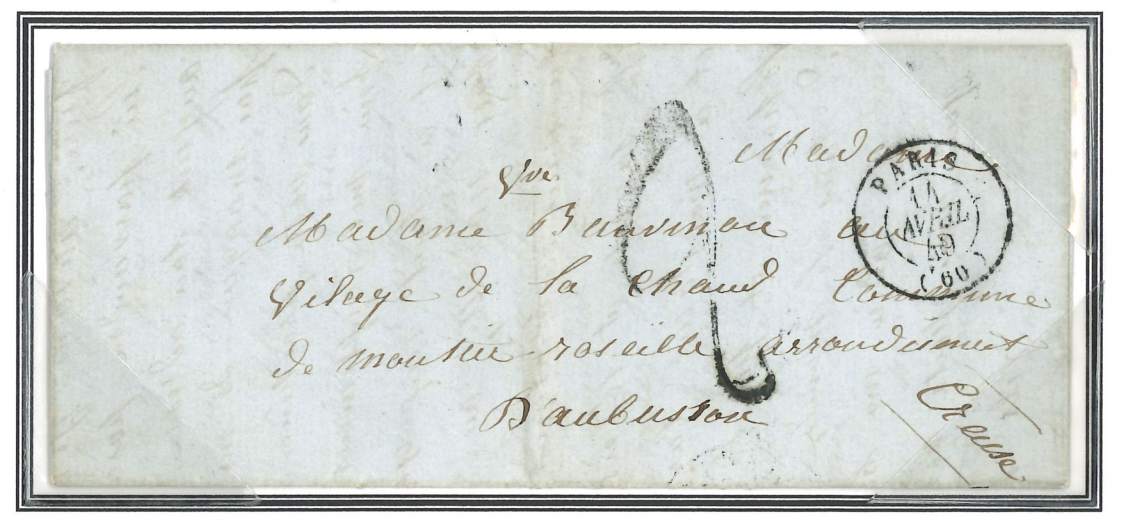 Madame
Vve
Madame Bauvinou au
Vilage de la Chaud Commune
de moustie roseille arrondisment
D'aubusson
Creuse
PARIS
14
AVRIL
49
(60)